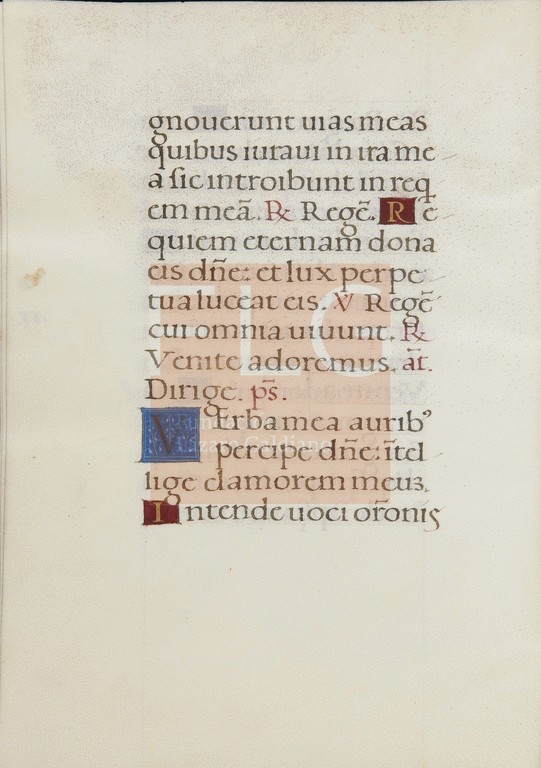 gnouerunt uias meas
quibus iuraui in ira me
a sic introibunt in req
em meā. ℟ Regē. Re
quiem eternam dona
eis dñe: et lux perpe
tua luceat eis. ℣ Regē
cui omnia uiuunt. ℟
Venite adoremus. āt.
Dirige. ps̄.
VErba mea auribꝰ
percipe dñe: ītel
lige clamorem meus.
Intende uoci orōnis
FLG
Fundación
Lázaro Galdiano